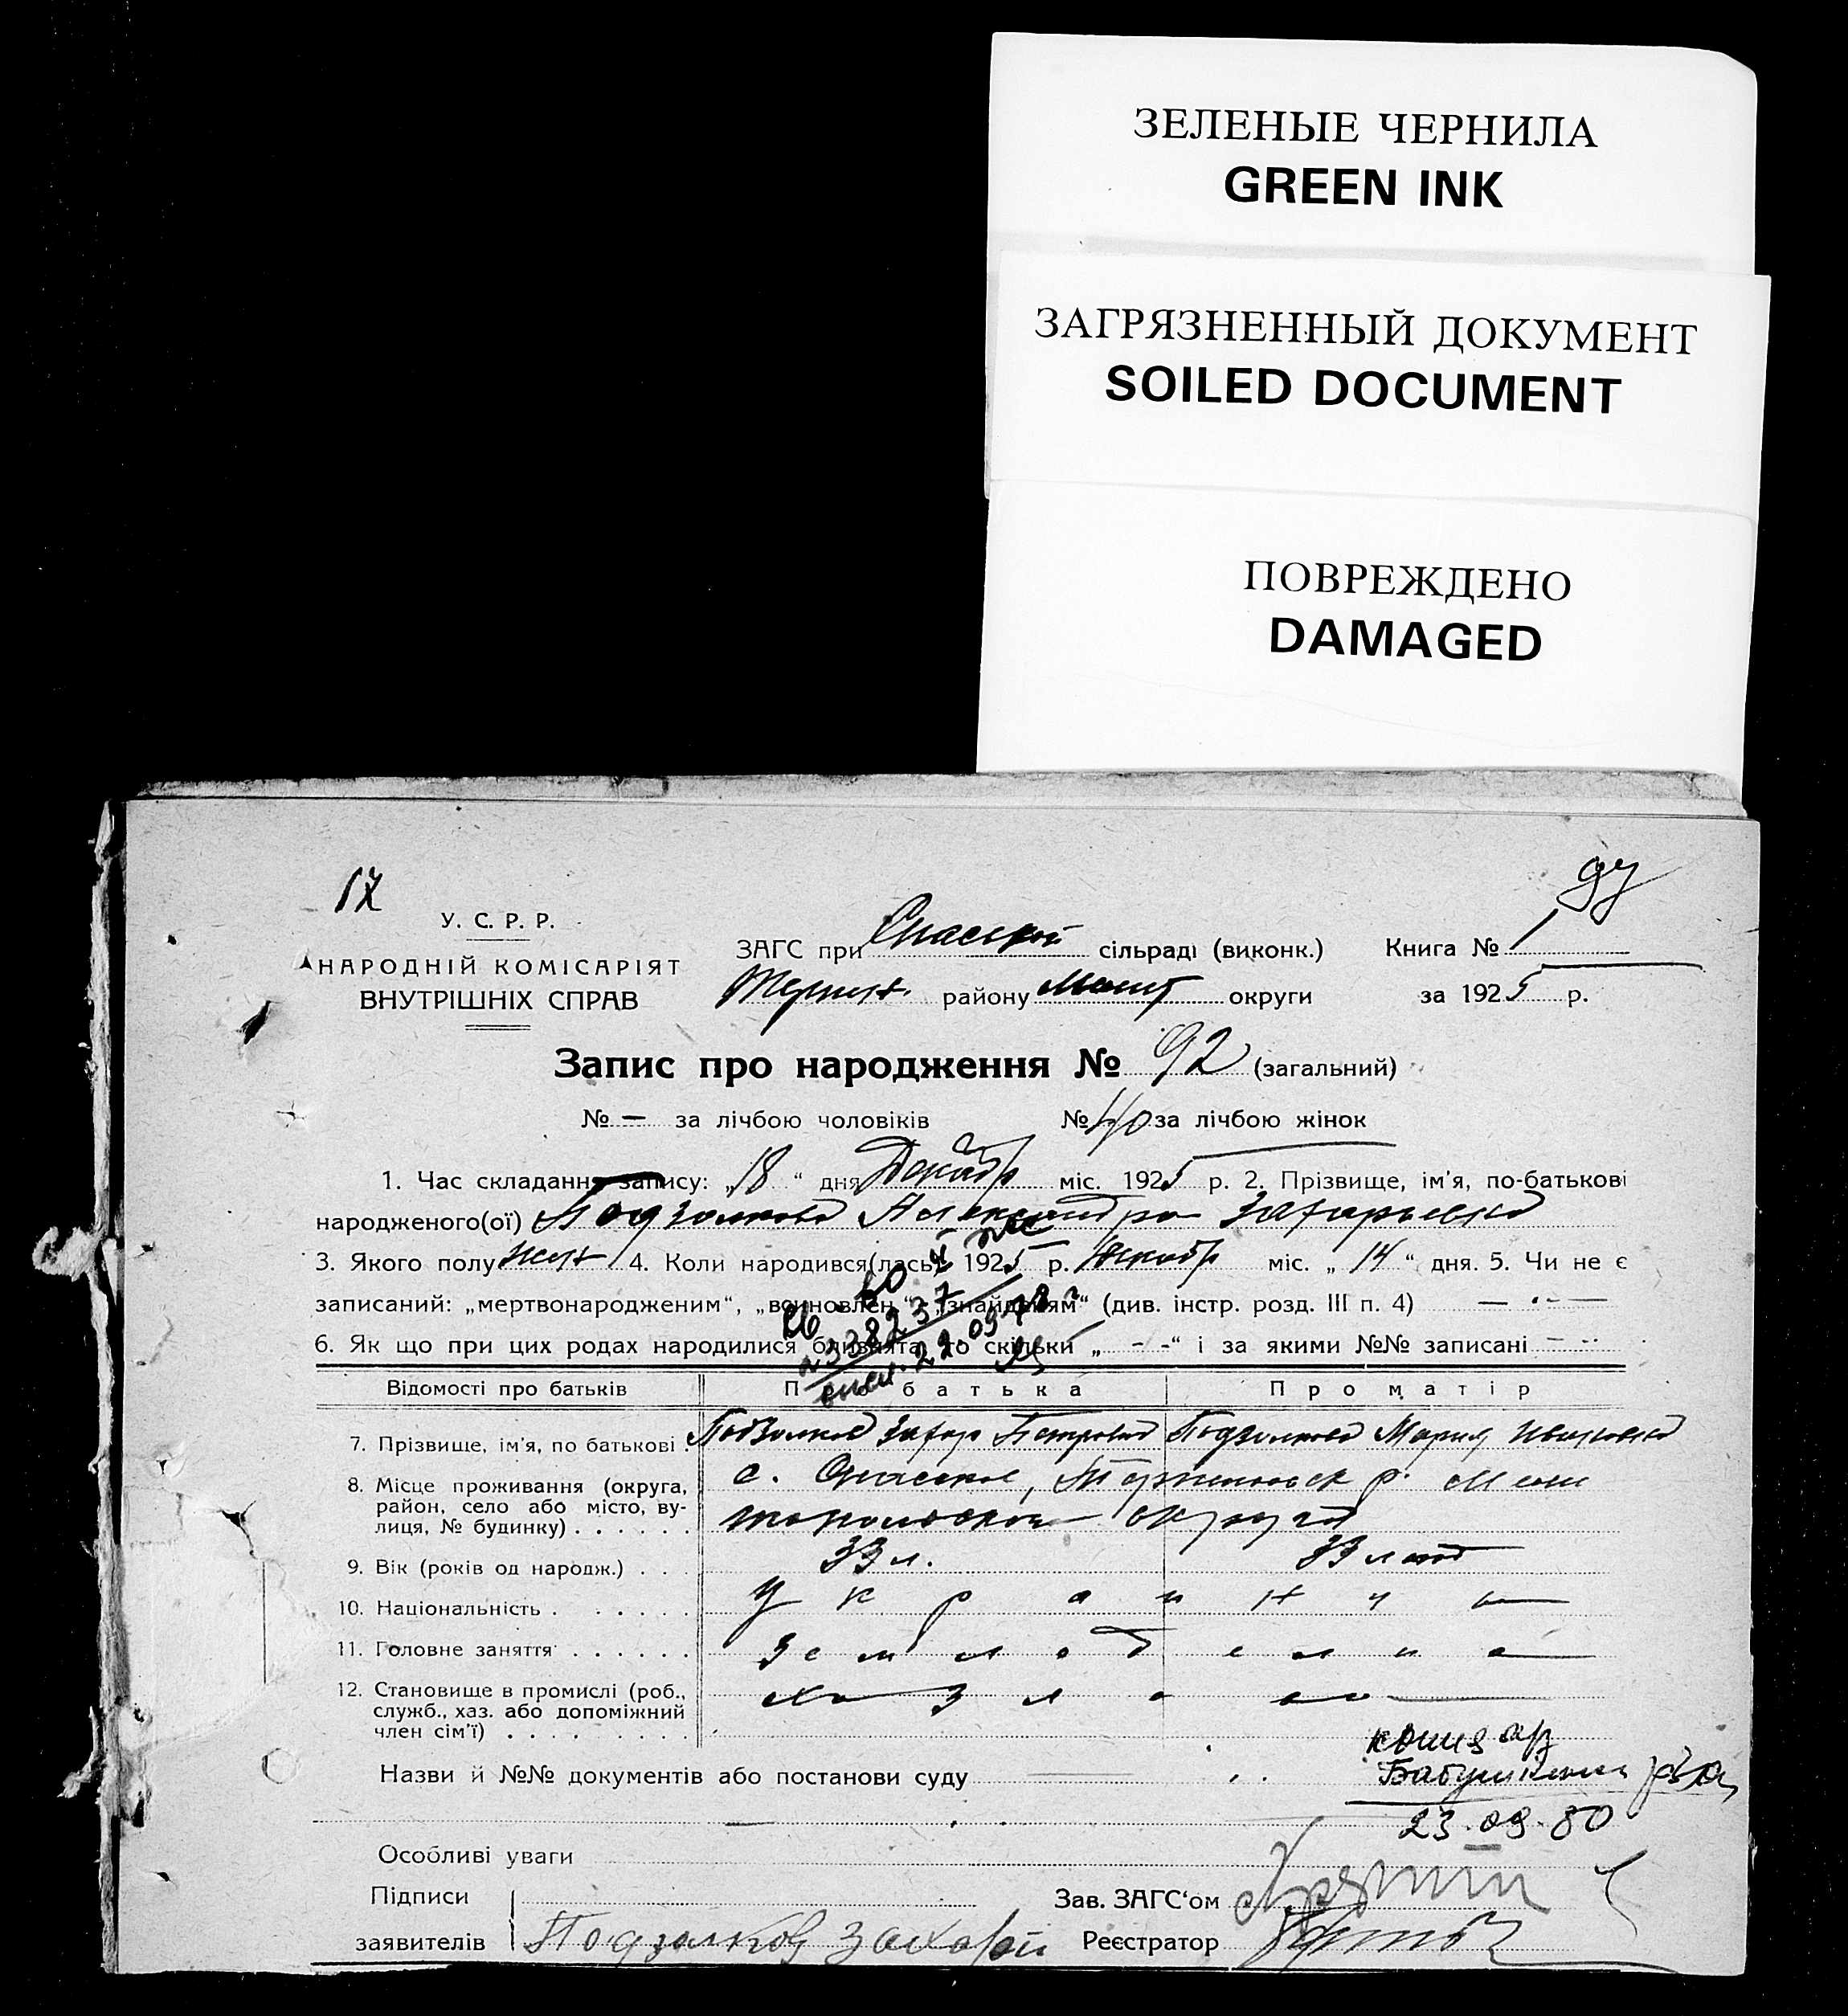 ЗЕЛЕНЫЕ ЧЕРНИЛА
GREEN INK
ЗАГРЯЗНЕННЫЙ ДОКУМЕНТ
SOILED DOCUMENT
ПОВРЕЖДЕНО
DAMAGED
97
17
У. С. Р. Р.
НАРОДНІЙ КОМІСАРІЯТ
ВНУТРІШНІХ СПРАВ
ЗАГС при Спасской сільраді (виконк.) Книга № 1
району Мелит округи за 1925 р.
Запис про народження № 92 (загальний)
№ — за лічбою чоловіків № 40 за лічбою жінок
1. Час складання запису: „18“ дня Декабр міс. 1925 р. 2. Прізвище, ім'я, по-батькові
народженого(ої) Подзолкова Александра Захарьевна
3. Якого полу жен 4. Коли народився(лась) 1925 р. декабр міс. „14“ дня. 5. Чи не є
записаний: „мертвонародженим“, „всиновлен.“, „знайденям“ (див. інстр. розд. III п. 4) —
6. Як що при цих родах народилися близнята, то скільки „ - -“ і за якими №№ записані — -
338237
22.09.78 г
Відомості про батьків Про батька Про матір
7. Прізвище, ім'я, по батькові . Подзолков Захар Петрович Подзолкова Мария Ивановна
8. Місце проживання (округа, район, село або місто, вулиця, № будинку) . . . . . . с. Спасское, р. Мели
топольской округи
9. Вік (років од народж.) . . . 33 л. 33 лет
10. Національність . . . . . . украинцы
11. Головне заняття . . . . . . земледелие
12. Становище в промислі (роб., служб., хаз. або допоміжний член сім'ї) . . . . . . . . .
Назви й №№ документів або постанови суду
Бабушкина
23.09.80
Особливі уваги
Підписи
заявителів Подзолков Захарий
Зав. ЗАГС'ом
Реєстратор